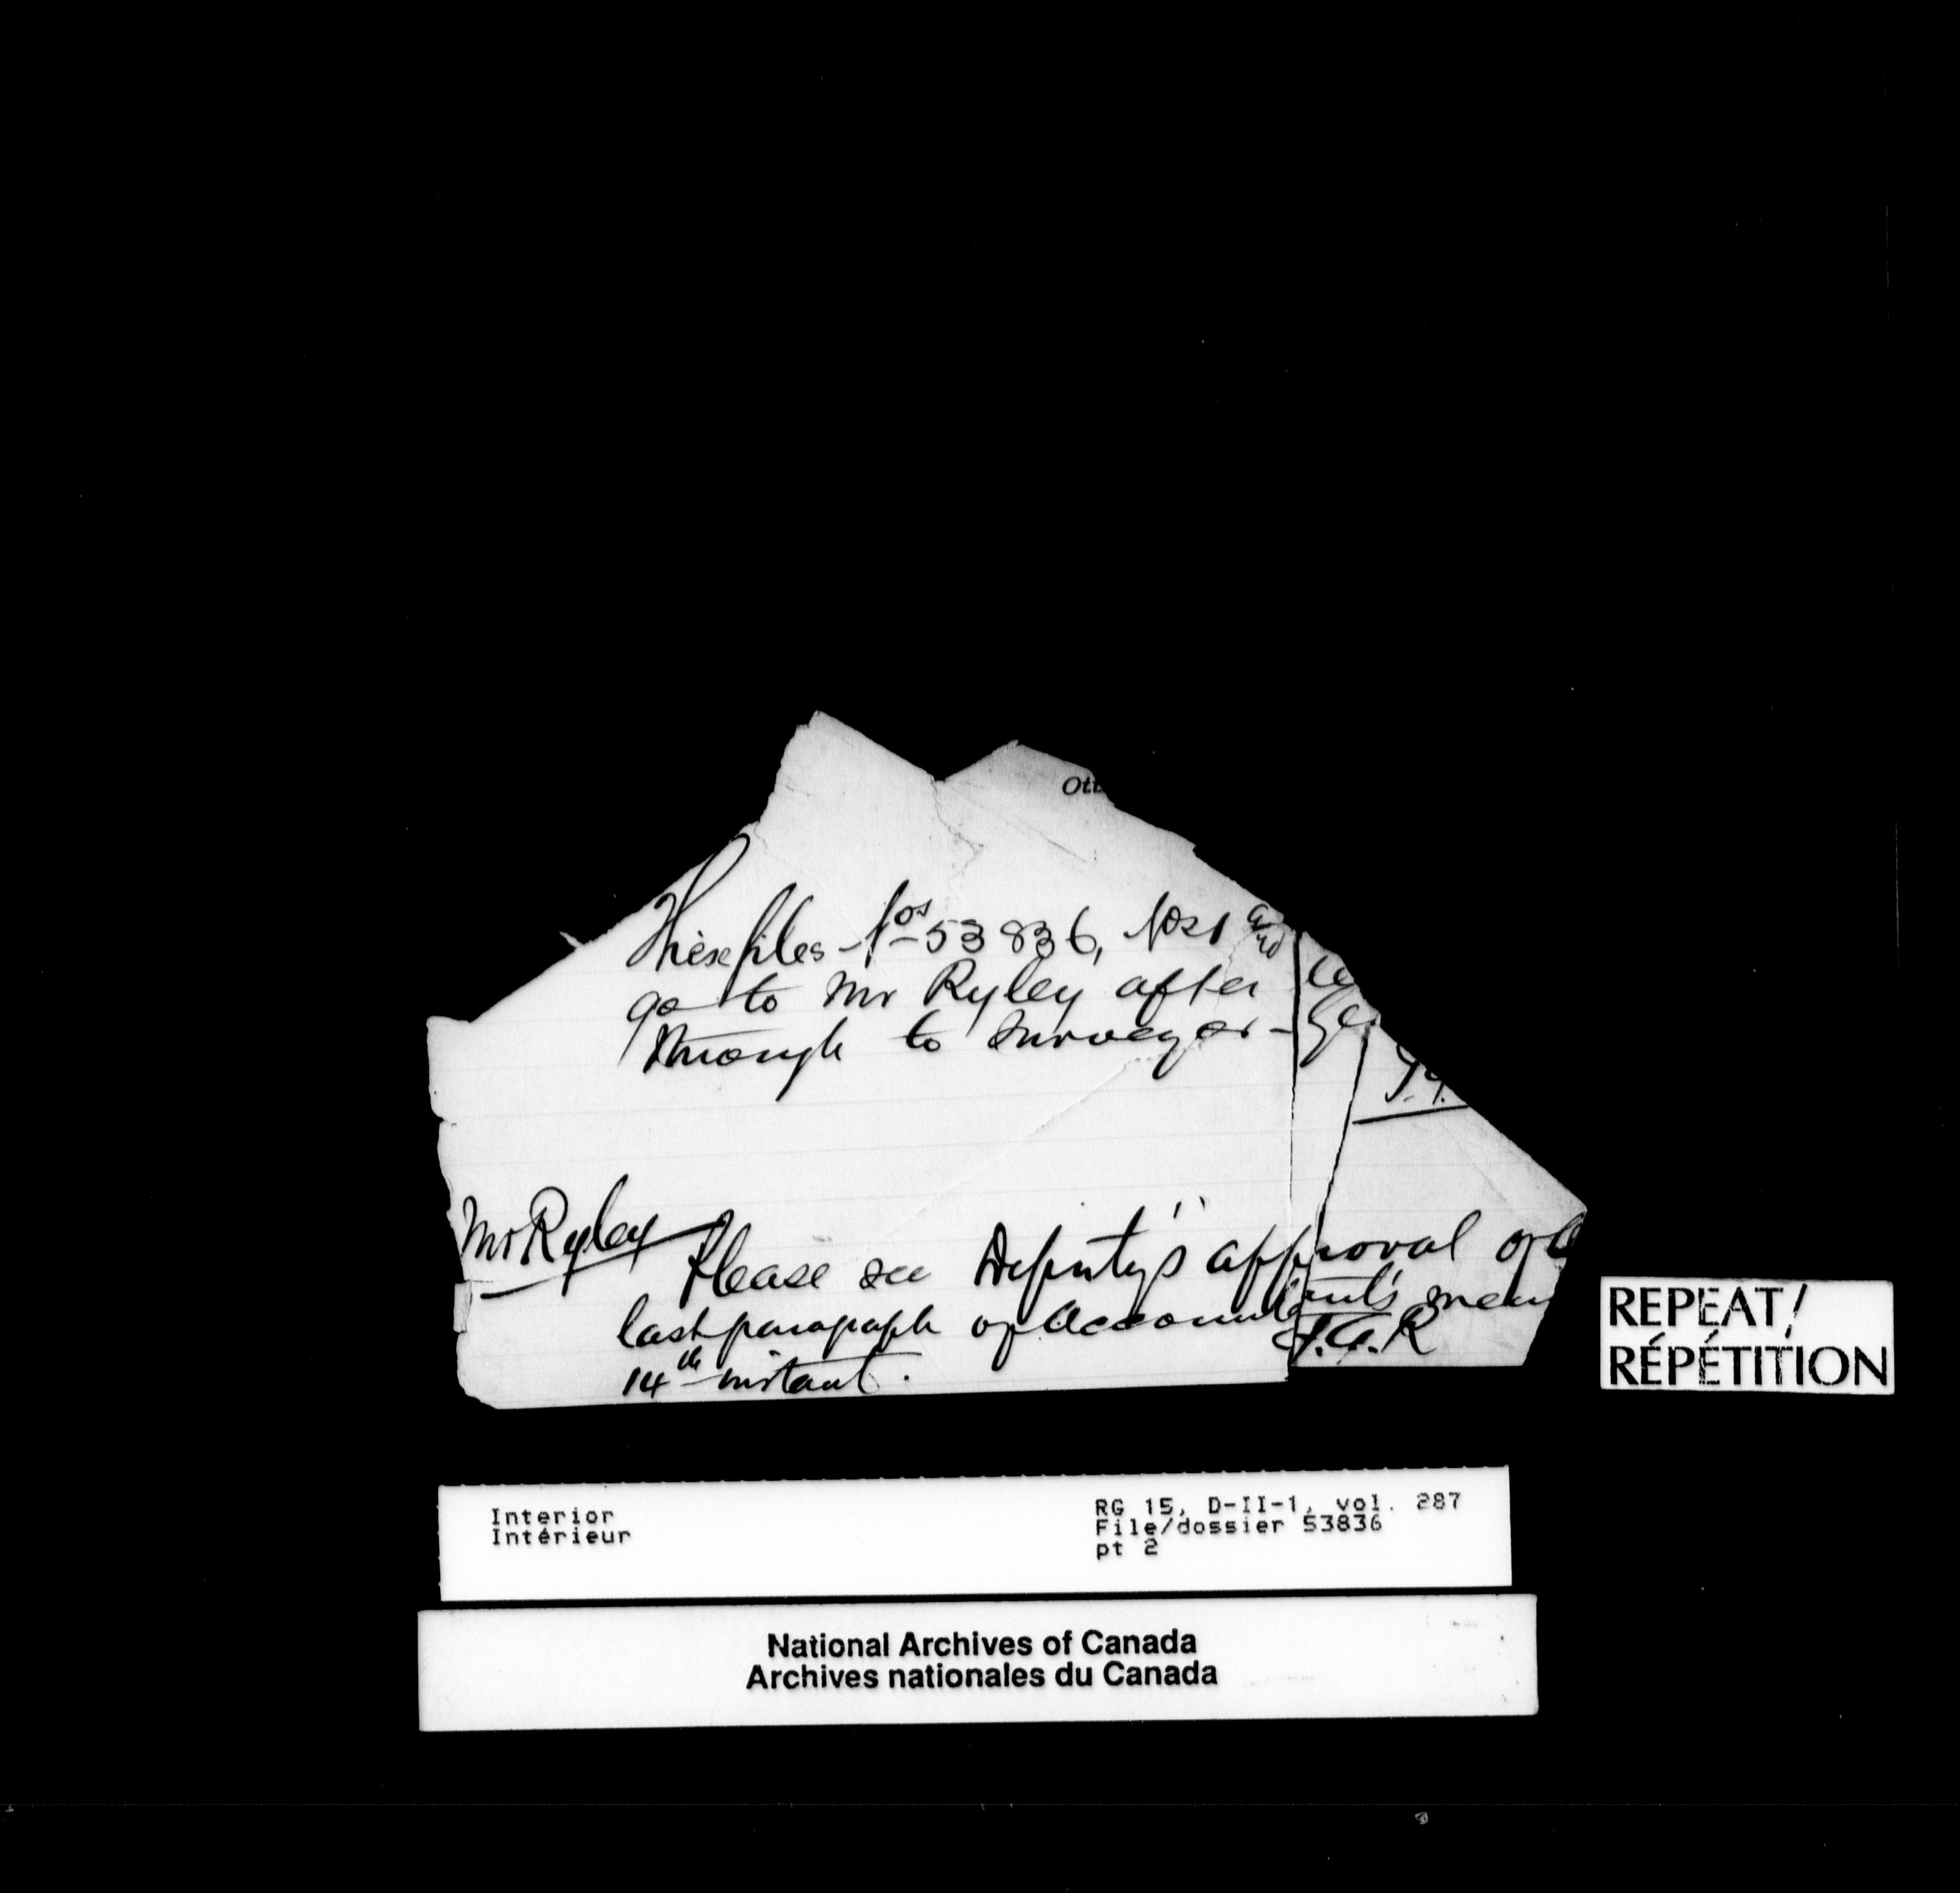 Ott
These files Nos 53836, Nos 1 and
go to Mr Ryley after
through to Surveyor-Ge
Mr Ryley
Please see Deputy's approval of
last paragraph of Accountant's mem
14th instant.
REPEAT/
RÉPÉTITION
Interior
Intérieur
RG 15, D-II-1, vol. 287
File/dossier 53836
pt 2
National Archives of Canada
Archives nationales du Canada